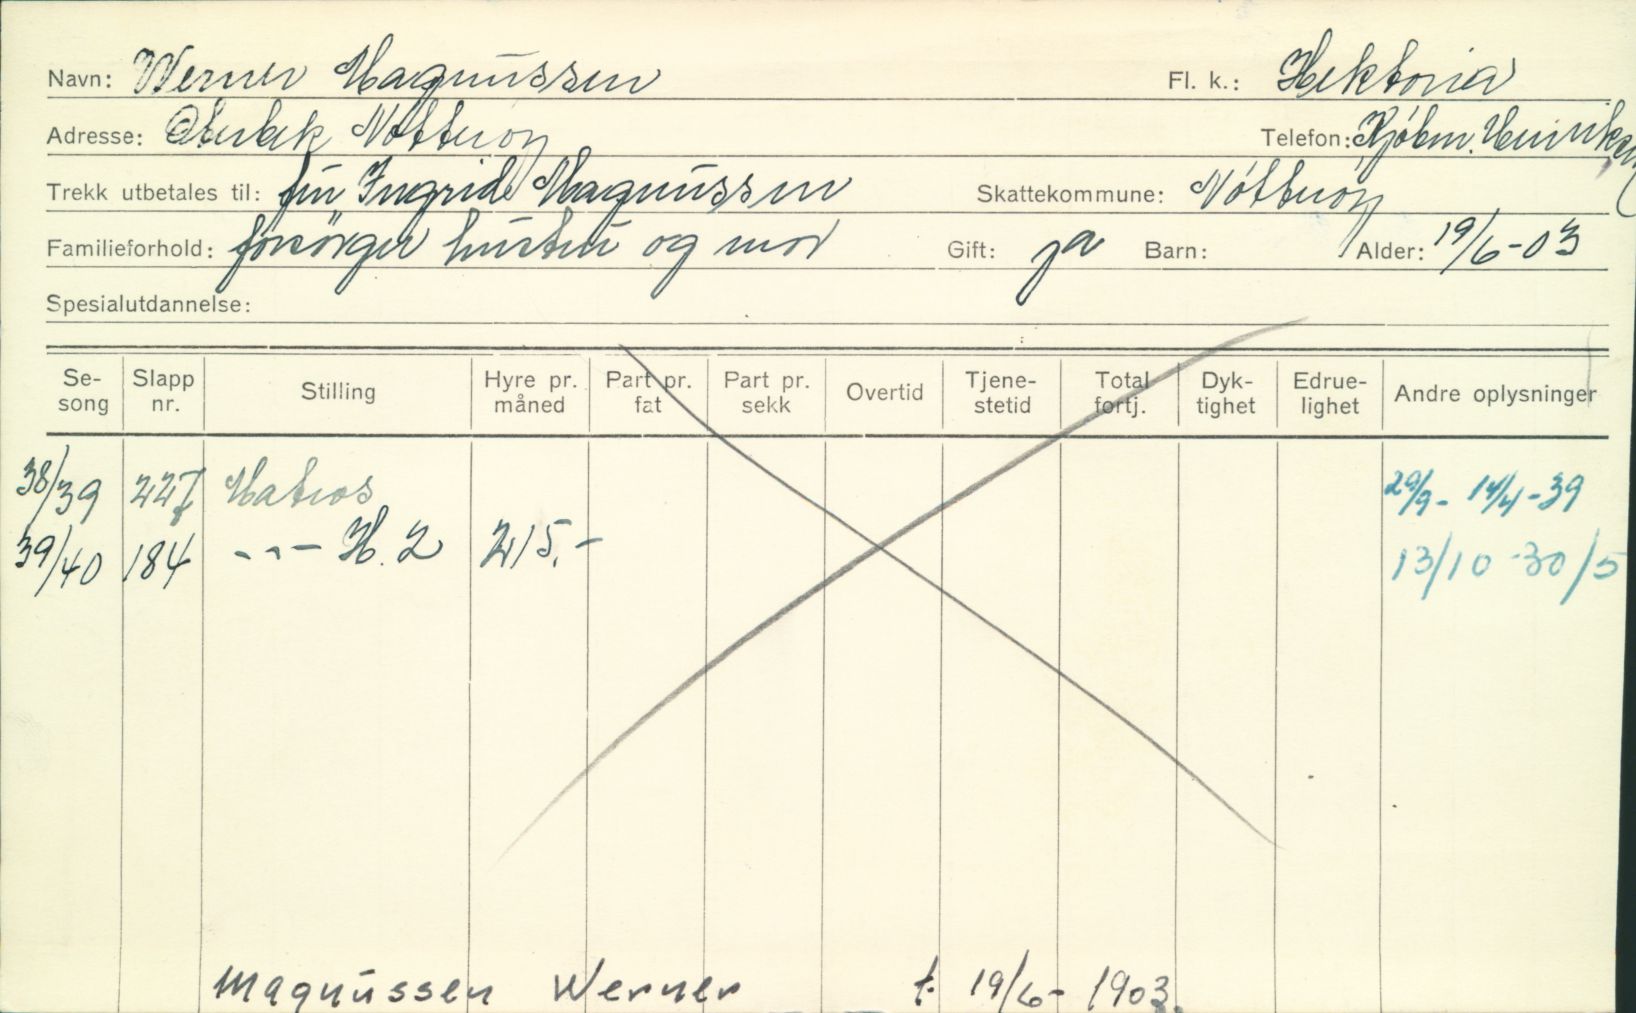 Navn: Werner Magnussen Fl. k.: Hektoria
Adresse: Nötteröy Telefon: Kjöbm. Henriksen
Trekk utbetales til: fru Ingrid Magnussen Skattekommune: Nötteröy
Familieforhold: forsörger hustru og mor Gift: ja Barn: Alder: 19/6-03
Spesialutdannelse:
Se-song Slapp nr. Stilling Hyre pr. måned Part pr. fat Part pr. sekk Overtid Tjene-stetid Total fortj. Dyk-tighet Edrue-lighet Andre oplysninger
38/39 227 Matros 29/9- 14/4-39
39/40 184 -"- H. 2 215.- 13/10-30/5
Magnussen Werner f. 19/6-1903.